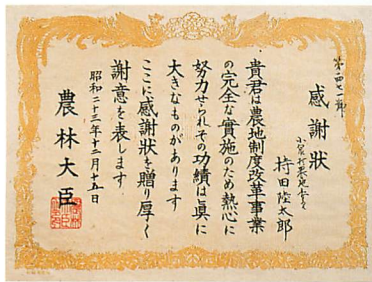 感謝狀
持田陸太郎
貴君は農地制度改革事業
の完全な實施のため熱心に
努力せられその功績は眞に
大きなものがあります
ここに感謝狀を贈り厚く
謝意を表します
昭和二十三年十二月十五日
農林大臣